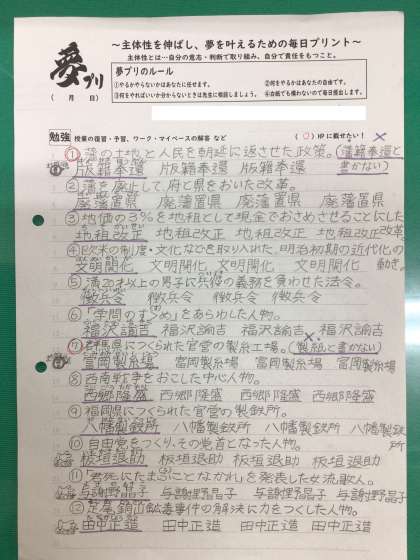 夢プリ
～主体性を伸ばし、夢を叶えるための毎日プリント～
主体性とは…自分の意志・判断で取り組み、自分で責任をもつこと。
夢プリのルール
①やるかやらないかはあなたに任せます。 ②何をやるかはあなたの自由です。
③何をやればいいか分からないときは先生に相談しましょう。 ④白紙でも構わないので毎日提出します。
( 月 日)
勉強 授業の復習・予習、ワーク・マイペースの解答 など
( 〇 )HPに載せたい！
①藩の土地と人民を朝廷に返させた政策。(藩籍奉還と書かない)
版籍奉還 版籍奉還 版籍奉還
②藩を廃止して、府と県をおいた改革。
廃藩置県 廃藩置県 廃藩置県 廃藩置県
③地価の3%を地租として現金でおさめさせることにした改革
地租改正 地租改正 地租改正 地租改正
④欧米の制度・文化などを取り入れた、明治初期の近代化の動き。
文明開化 文明開化 文明開化 文明開化
⑤満20才以上の男子に兵役の義務を負わせた法令。
徴兵令 徴兵令 徴兵令 徴兵令
⑥「学問のすゝめ」をあらわした人物。
福沢諭吉 福沢諭吉 福沢諭吉 福沢諭吉
⑦群馬県につくられた官営の製糸工場。(製紙と書かない)
富岡製糸場 富岡製糸場 富岡製糸場 富岡製糸場
⑧西南戦争をおこした中心人物。
西郷隆盛 西郷隆盛 西郷隆盛 西郷隆盛
⑨福岡県につくられた官営の製鉄所。
八幡製鉄所 八幡製鉄所 八幡製鉄所 八幡製鉄所
⑩自由党をつくり、その党首となった人物。
板垣退助 板垣退助 板垣退助 板垣退助
⑪「君死にたまふことなかれ」を発表した女流歌人。
与謝野晶子 与謝野晶子 与謝野晶子 与謝野晶子
⑫足尾銅山鉱毒事件の解決に力をつくした人物。
田中正造 田中正造 田中正造 田中正造